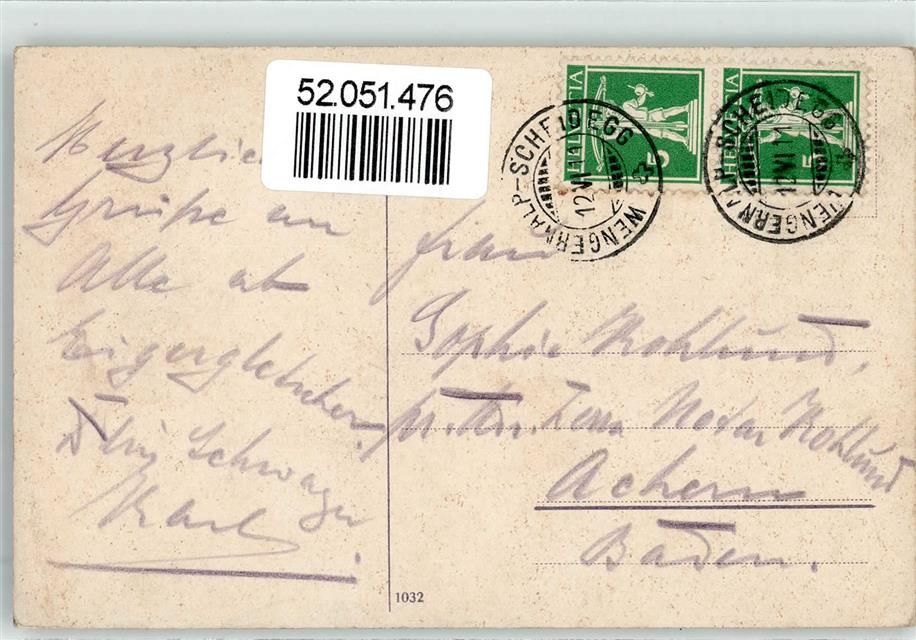 52.051.476
HELVETIA
5
HELVETIA
5
WENGERNALP-SCHEIDEGG
12.VI
WENGERNALP-SCHEIDEGG
12.VI 11
Herzliche
Grüße an
Alle ab
Eigergletscher
Dein Schwager
Karl
Frau
Sophie Nohlund,
Herrn Notar Nohlund
Achern
Baden.
1032